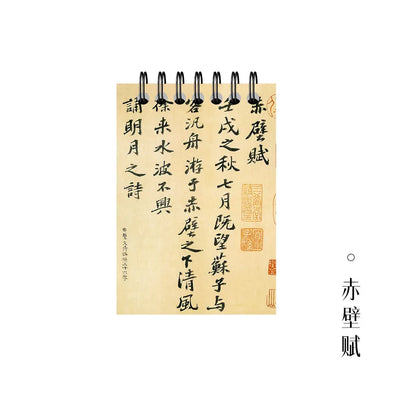 赤壁賦
壬戌之秋七月既望蘇子与
客汎舟游于赤壁之下清風
徐来水波不興
誦明月之詩
赤壁赋